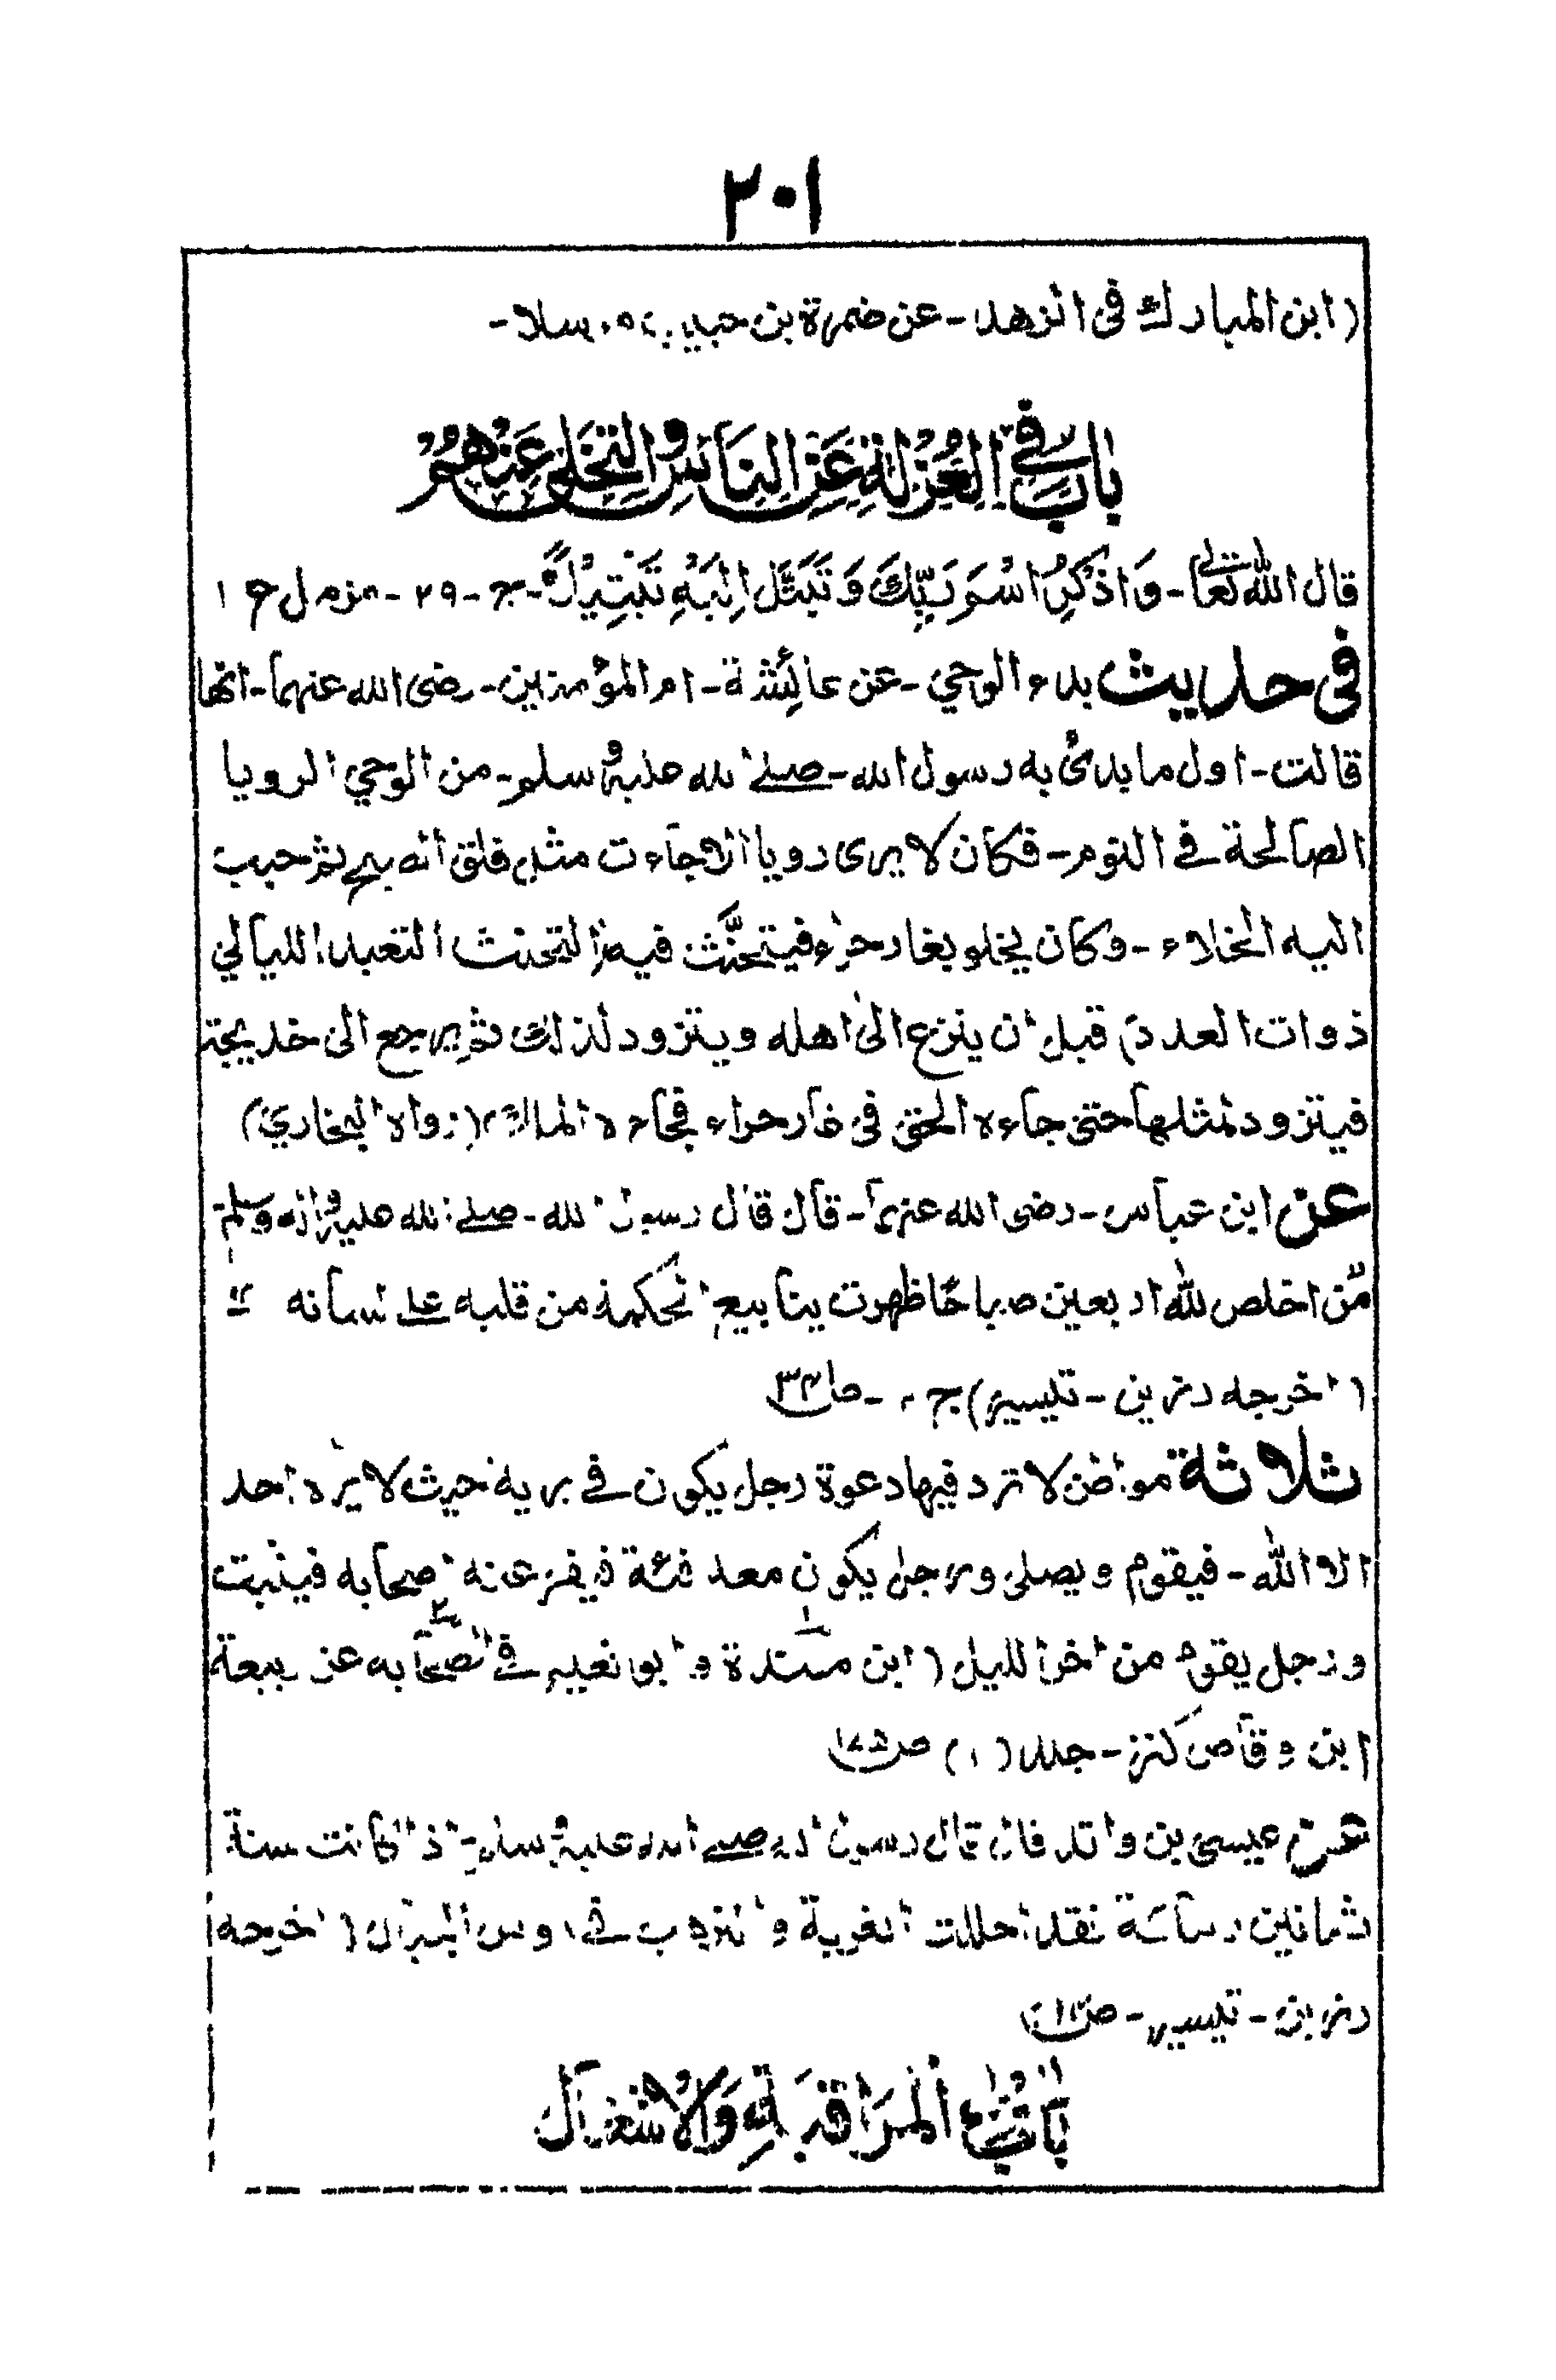 ٢٠١
(ابن المبارك فى الزهد - عن ضمرة بن حبيب مرسلا -
بَابٌ فِي الْعُزْلَةِ عَنِ النَّاسِ وَالتَّخَلِّى عَنْهُمْ
قال الله تعالى - وَاذْكُرِ اسْمَ رَبِّكَ وَتَبَتَّلْ اِلَيْهِ تَبْتِيْلًا - ج - ٢٩ - مزمل ع ١
فى حديث بدء الوحي - عن عائشة - ام المؤمنين - رضى الله عنها - انها
قالت - اول ما بدئ به رسول الله - صلى الله عليه وسلم - من الوحي الرويا
الصالحة فى النوم - فكان لا يرى رويا الا جاءت مثل فلق الصبح ثم حبب
اليه الخلاء - وكان يخلو بغار حراء فيتحنَّث فيه التحنث التعبد الليالي
ذوات العدد قبل ان ينزع الى اهله ويتزود لذلك ثم يرجع الى خديجة
فيتزود لمثلها حتى جاءه الحق فى غار حراء فجاءه الملك (رواه البخاري)
عن ابن عباس - رضى الله عنهما - قال قال رسول الله - صلى الله عليه واله وسلم
من اخلص لله اربعين صباحا ظهرت ينابيع الحكمة من قلبه على لسانه
(اخرجه رزين - تيسير) ج - ص٣٤
ثلاثة مواطن لا ترد فيها دعوة رجل يكون فى برية حيث لا يره احد
الا الله - فيقوم ويصلى ورجل يكون معه فئة فيفر عنه اصحابه فيثبت
ورجل يقوم من اخر الليل (ابن مندة وابو نعيم فى الصحابه عن ربيعة
ابن وقاص كنز - جلد (١) ص١٧٥
عن عيسى بن واقد قال قال رسول الله صلى الله عليه وسلم اذا كانت سنة
ثمانين ومائة فقد احللت الغربة والترهب فى روس الجبال (اخرجه
رزين - تيسير -
بَابُ الْمُرَاقَبَةِ وَالْاِشْغَالِ